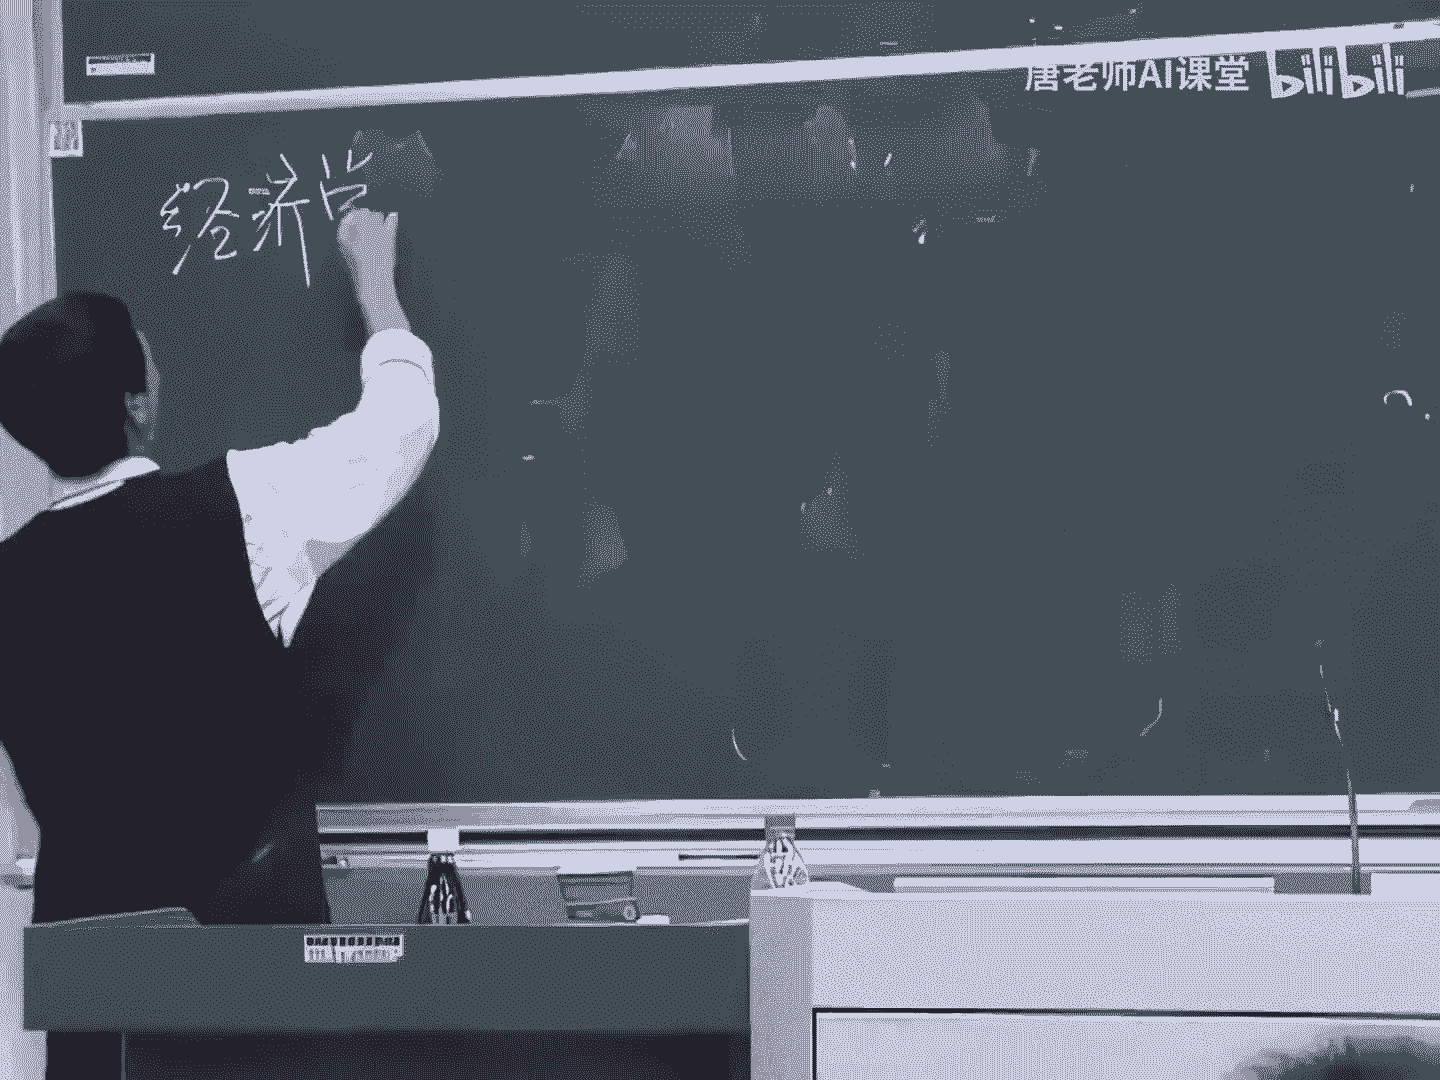 唐老师AI课堂 bilibili
经济